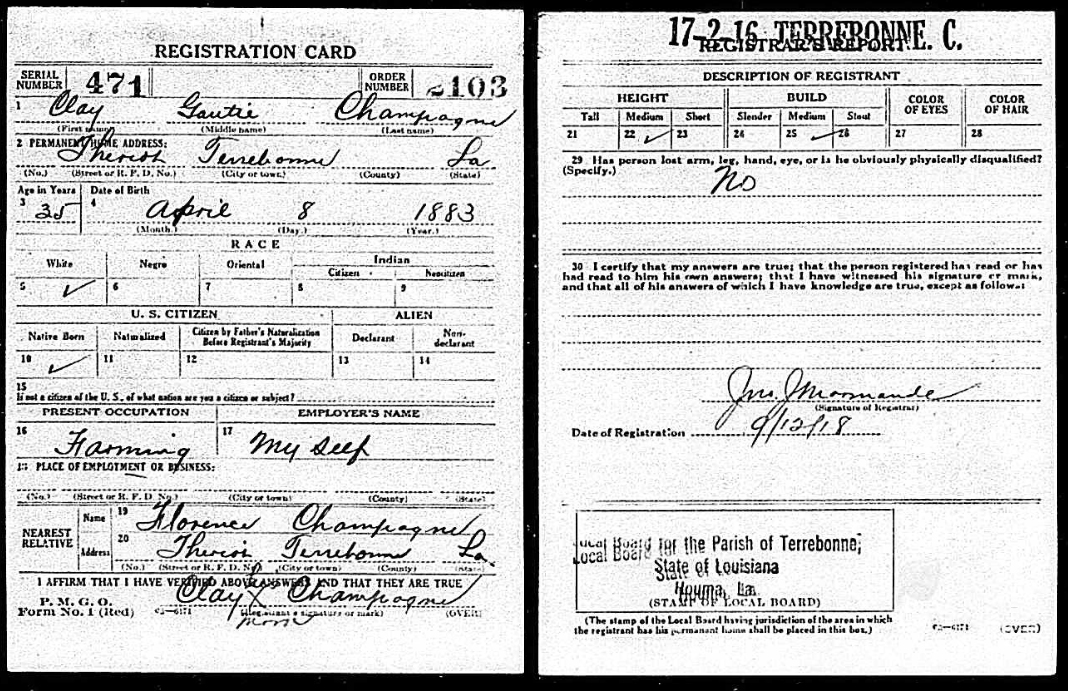 REGISTRATION CARD
SERIAL NUMBER 471 ORDER NUMBER 2103
1 Clay Gautie Champagne
(First name) (Middle name) (Last name)
2 PERMANENT HOME ADDRESS:
Theriot Terrebonne La
(No.) (Street or R. F. D. No.) (City or town) (County) (State)
Age in Years Date of Birth
3 35 4 April 8 1883
(Month.) (Day.) (Year.)
RACE
White Negro Oriental Indian
Citizen Noncitizen
5 ✓ 6 7 8 9
U. S. CITIZEN ALIEN
Native Born Naturalized Citizen by Father's Naturalization Before Registrant's Majority Declarant Non-declarant
10 ✓ 11 12 13 14
15
If not a citizen of the U. S., of what nation are you a citizen or subject?
PRESENT OCCUPATION EMPLOYER'S NAME
16 Farming 17 My self
18 PLACE OF EMPLOYMENT OR BUSINESS:
(No.) (Street or R. F. D. No.) (City or town) (County) (State)
NEAREST RELATIVE Name 19 Florence Champagne
Address 20 Theriot Terrebonne La
(No.) (Street or R. F. D. No.) (City or town) (County) (State)
I AFFIRM THAT I HAVE VERIFIED ABOVE ANSWERS AND THAT THEY ARE TRUE
P. M. G. O.
Form No. 1 (Red) 03—6171 Clay X Champagne
(Registrant's signature or mark) (OVER)
17-2-16 TERREBONNE. C.
REGISTRAR'S REPORT
DESCRIPTION OF REGISTRANT
HEIGHT BUILD COLOR OF EYES COLOR OF HAIR
Tall Medium Short Slender Medium Stout
21 22 ✓ 23 24 25 ✓ 26 27 28
29 Has person lost arm, leg, hand, eye, or is he obviously physically disqualified?
(Specify.) No
30 I certify that my answers are true; that the person registered has read or has
had read to him his own answers; that I have witnessed his signature or mark,
and that all of his answers of which I have knowledge are true, except as follows:
Jno. J
(Signature of Registrar)
Date of Registration 9/12/18
Local Board for the Parish of Terrebonne,
State of Louisiana
Houma, La.
(STAMP OF LOCAL BOARD)
(The stamp of the Local Board having jurisdiction of the area in which
the registrant has his permanent home shall be placed in this box.)
03—6171 (OVER)